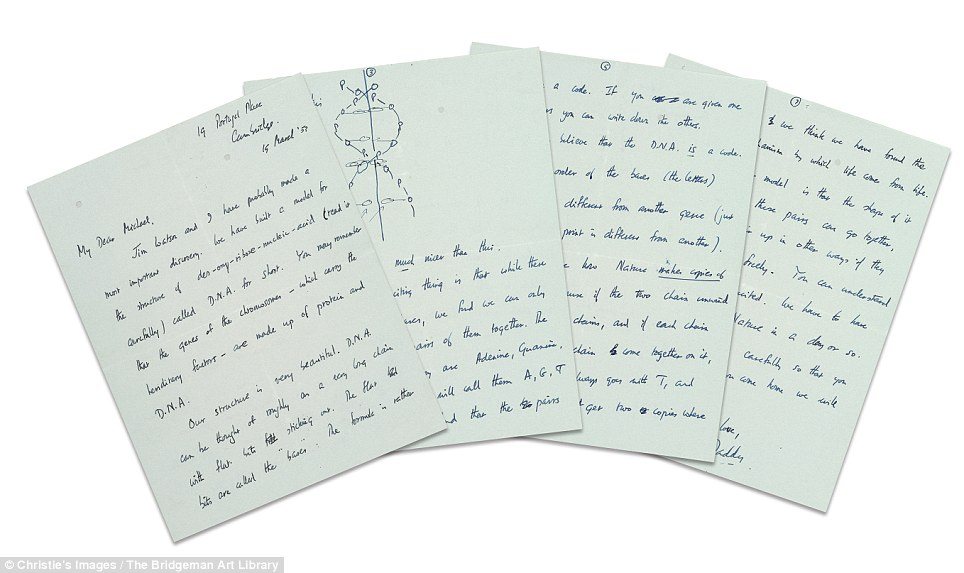 19 Portugal Place
Cambridge.
19 March '53
My Dear Michael,
Jim Watson and I have probably made a
most important discovery. We have built a model for
the structure of des-oxy-ribose-nucleic-acid (read it
carefully) called D.N.A. for short. You may remember
that the genes of the chromosomes – which carry the
hereditary factors – are made up of protein and
D.N.A.
Our structure is very beautiful. D.N.A.
can be thought of roughly as a very long chain
with flat bits sticking out. The flat
bits are called the "bases". The formula is rather
3
P
P
P
P
P
much nicer than this.
citing thing is that while there
ses, we find we can only
airs of them together. The
are Adenine, Guanine,
will call them A, G, T
nd that the pairs
5
a code. If you are given one
s you can write down the others.
believe that the D.N.A. is a code.
order of the bases (the letters)
different from another gene (just
print is different from another).
how Nature makes copies of
use if the two chain unwind
chains, and if each chain
chain come together on it,
lways goes with T, and
get two copies where
7
we think we have found the
hanism by which life comes from life.
model is that the shape of it
these pairs can go together,
up in other ways if they
freely. You can understand
cited. We have to have
Nature in a day or so.
carefully so that you
come home we will
love,
addy
© Christie's Images / The Bridgeman Art Library